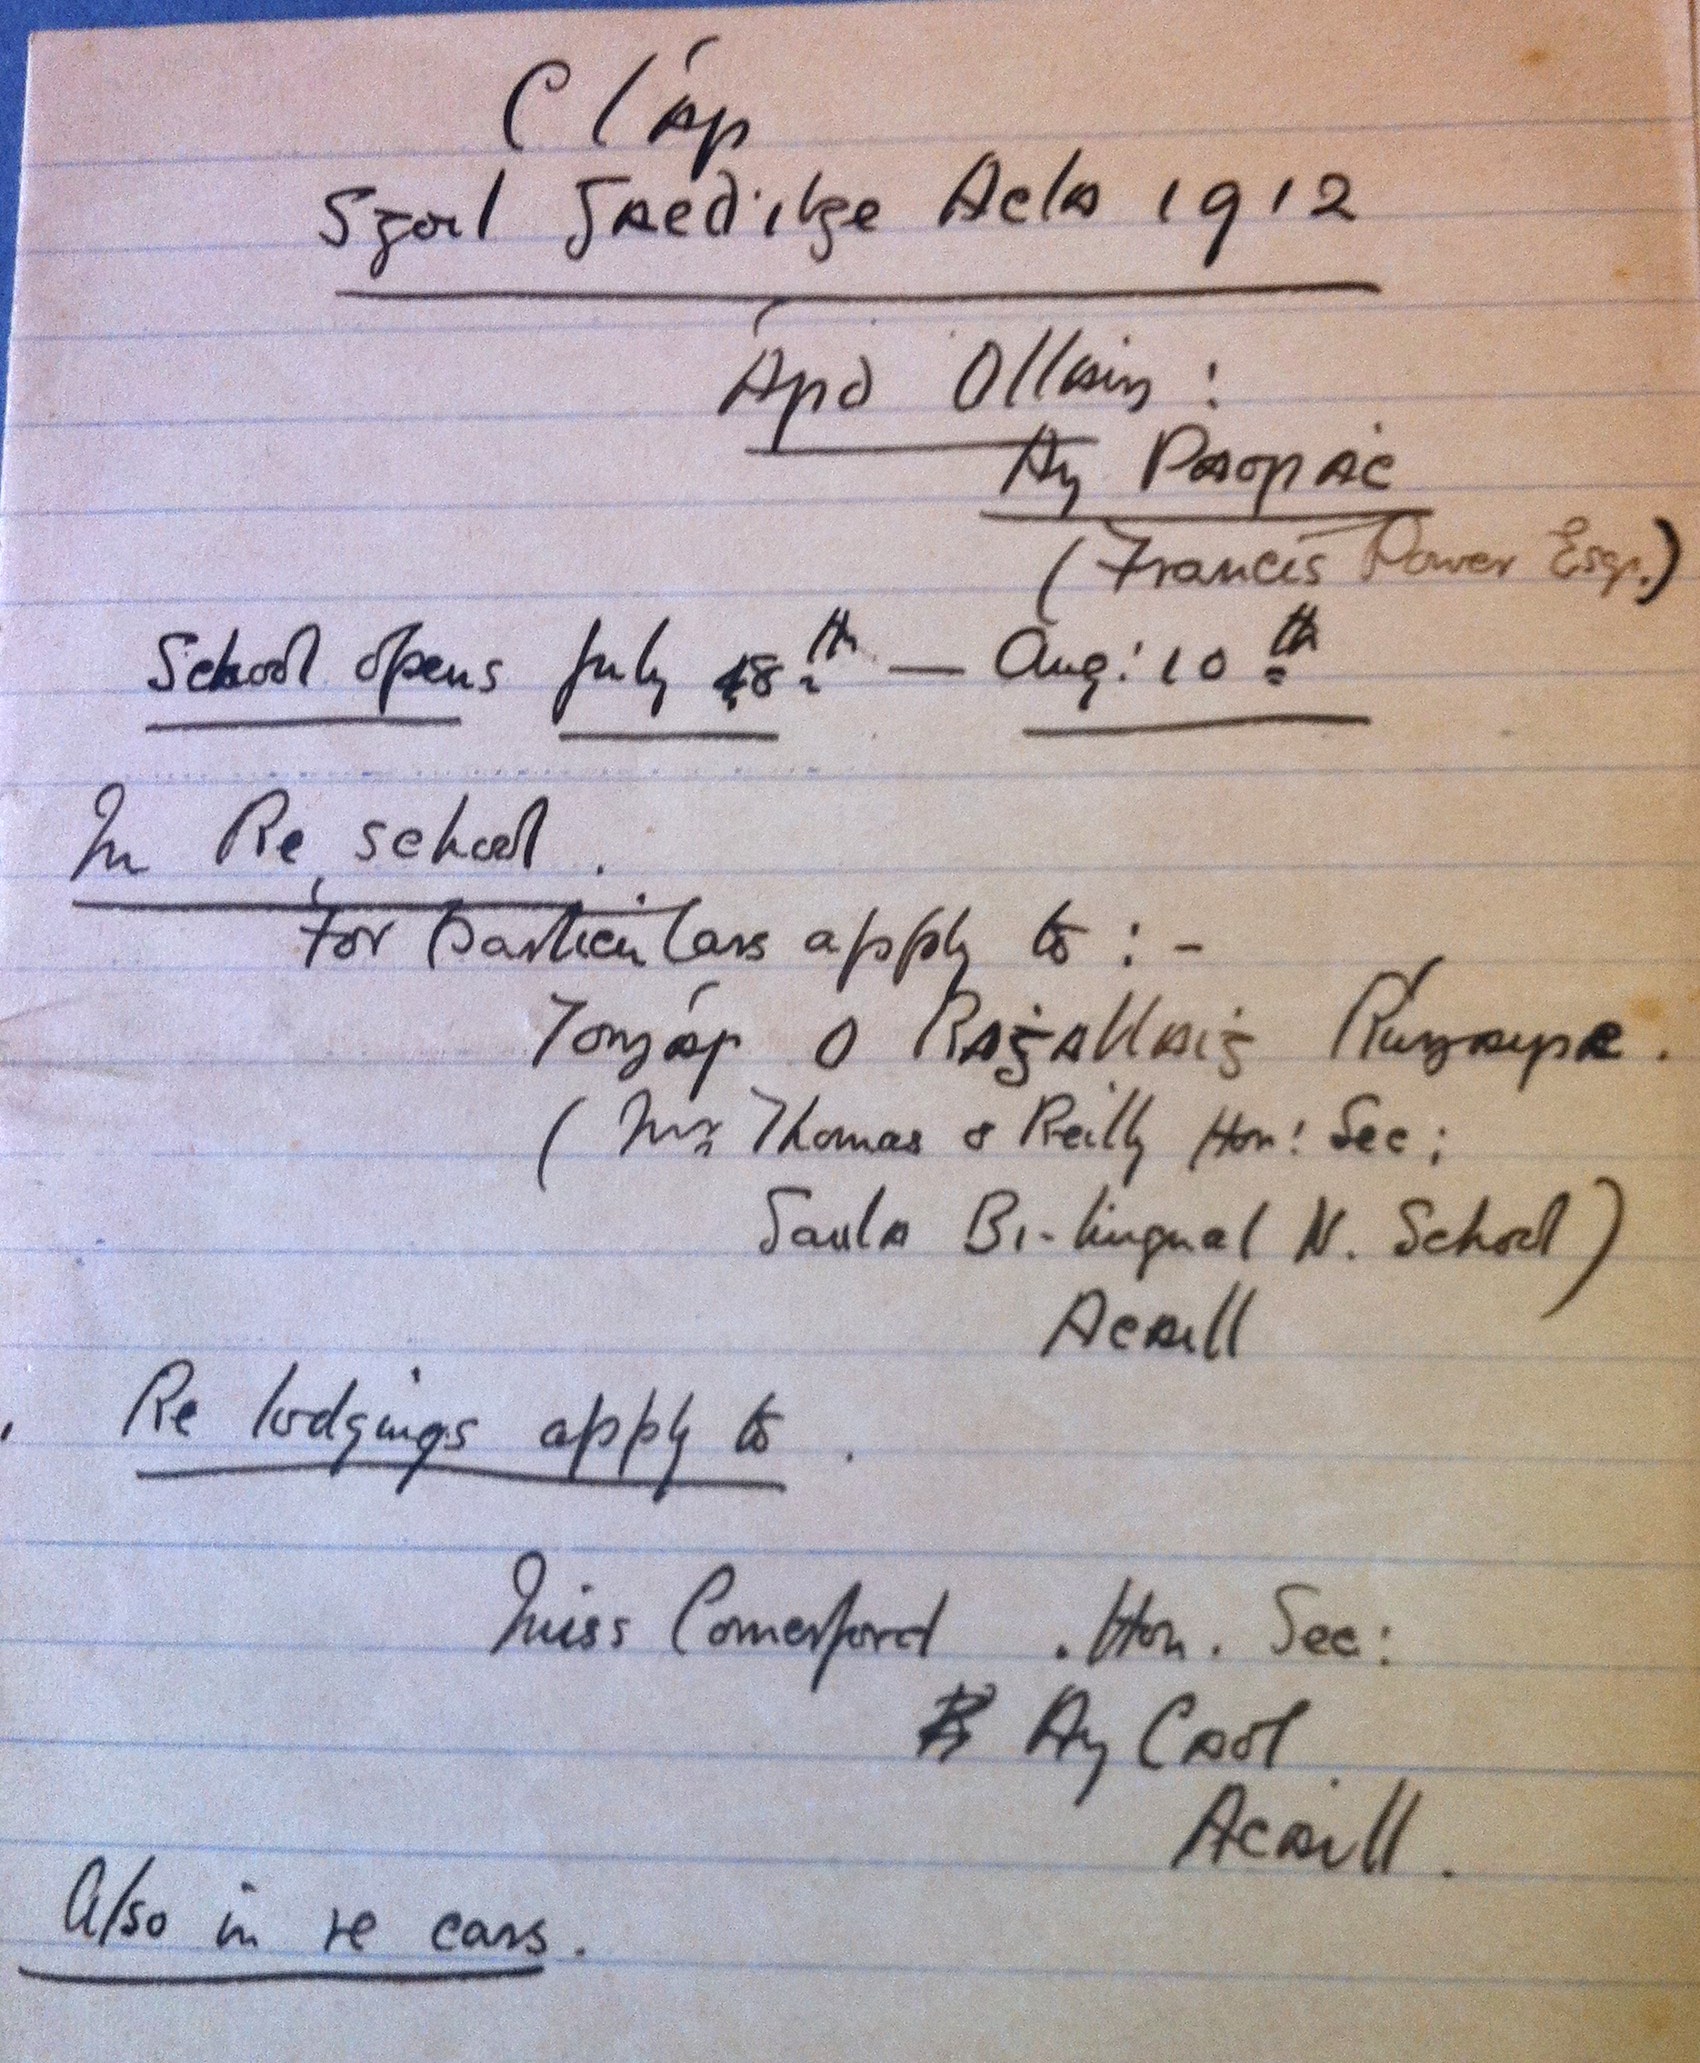 Clár
Sgoil Gaeḋilge Acla 1912
Árd Ollaṁ:
An Paoraċ
(Francis Power Esq.)
School opens July 8th — Aug: 10th
In Re school.
For particulars apply to:-
Tomár O Raġallaiġ Rúnaire.
(Mr Thomas O Reilly Hon: Sec;
Saula Bi-lingual N. School)
Acaill
Re lodgings apply to.
Miss Comerford. Hon. Sec:
An Caol
Acaill.
Also in re cars.